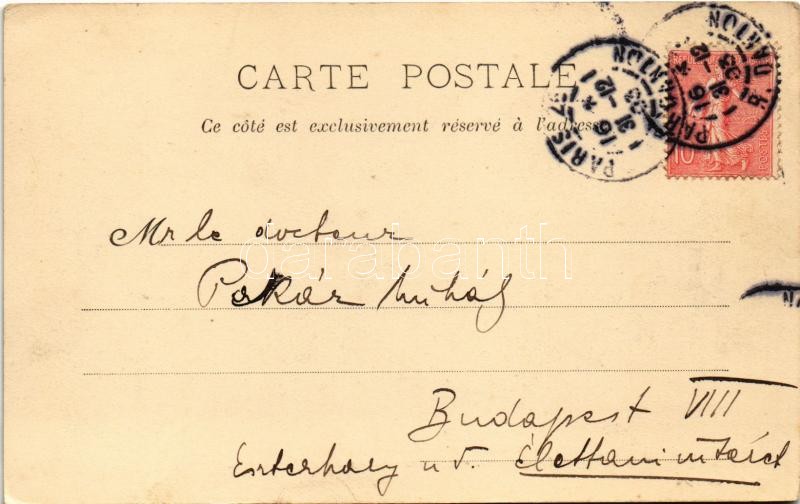 CARTE POSTALE
Ce côté est exclusivement réservé à l'adresse
PARIS
31 - 12
03
10
Mr le docteur
Pekár Mihály
Budapest VIII
Eszterházy u. Élettani intézet
darabanth